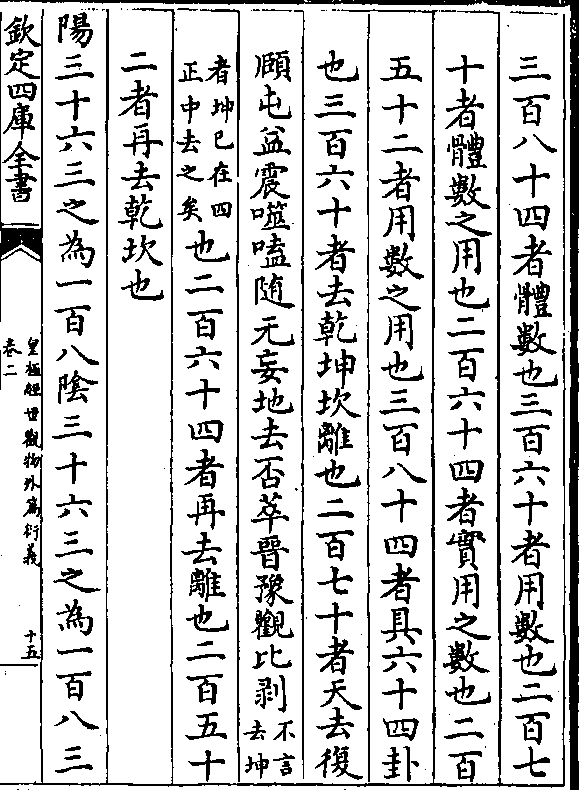 三百八十四者體數也三百六十者用數也二百七
十者體數之用也二百六十四者實用之數也二百
五十二者用數之用也三百八十四者具六十四卦
也三百六十者去乾坤坎離也二百七十者天去復
頤屯益震噬嗑随无妄地去否萃晉豫觀比剥不言去坤
者坤已在四正中去之矣也二百六十四者再去離也二百五十
二者再去乾坎也
陽三十六三之為一百八陰三十六三之為一百八三
欽定四庫全書
皇極經世觀物外篇衍義
卷二
十五